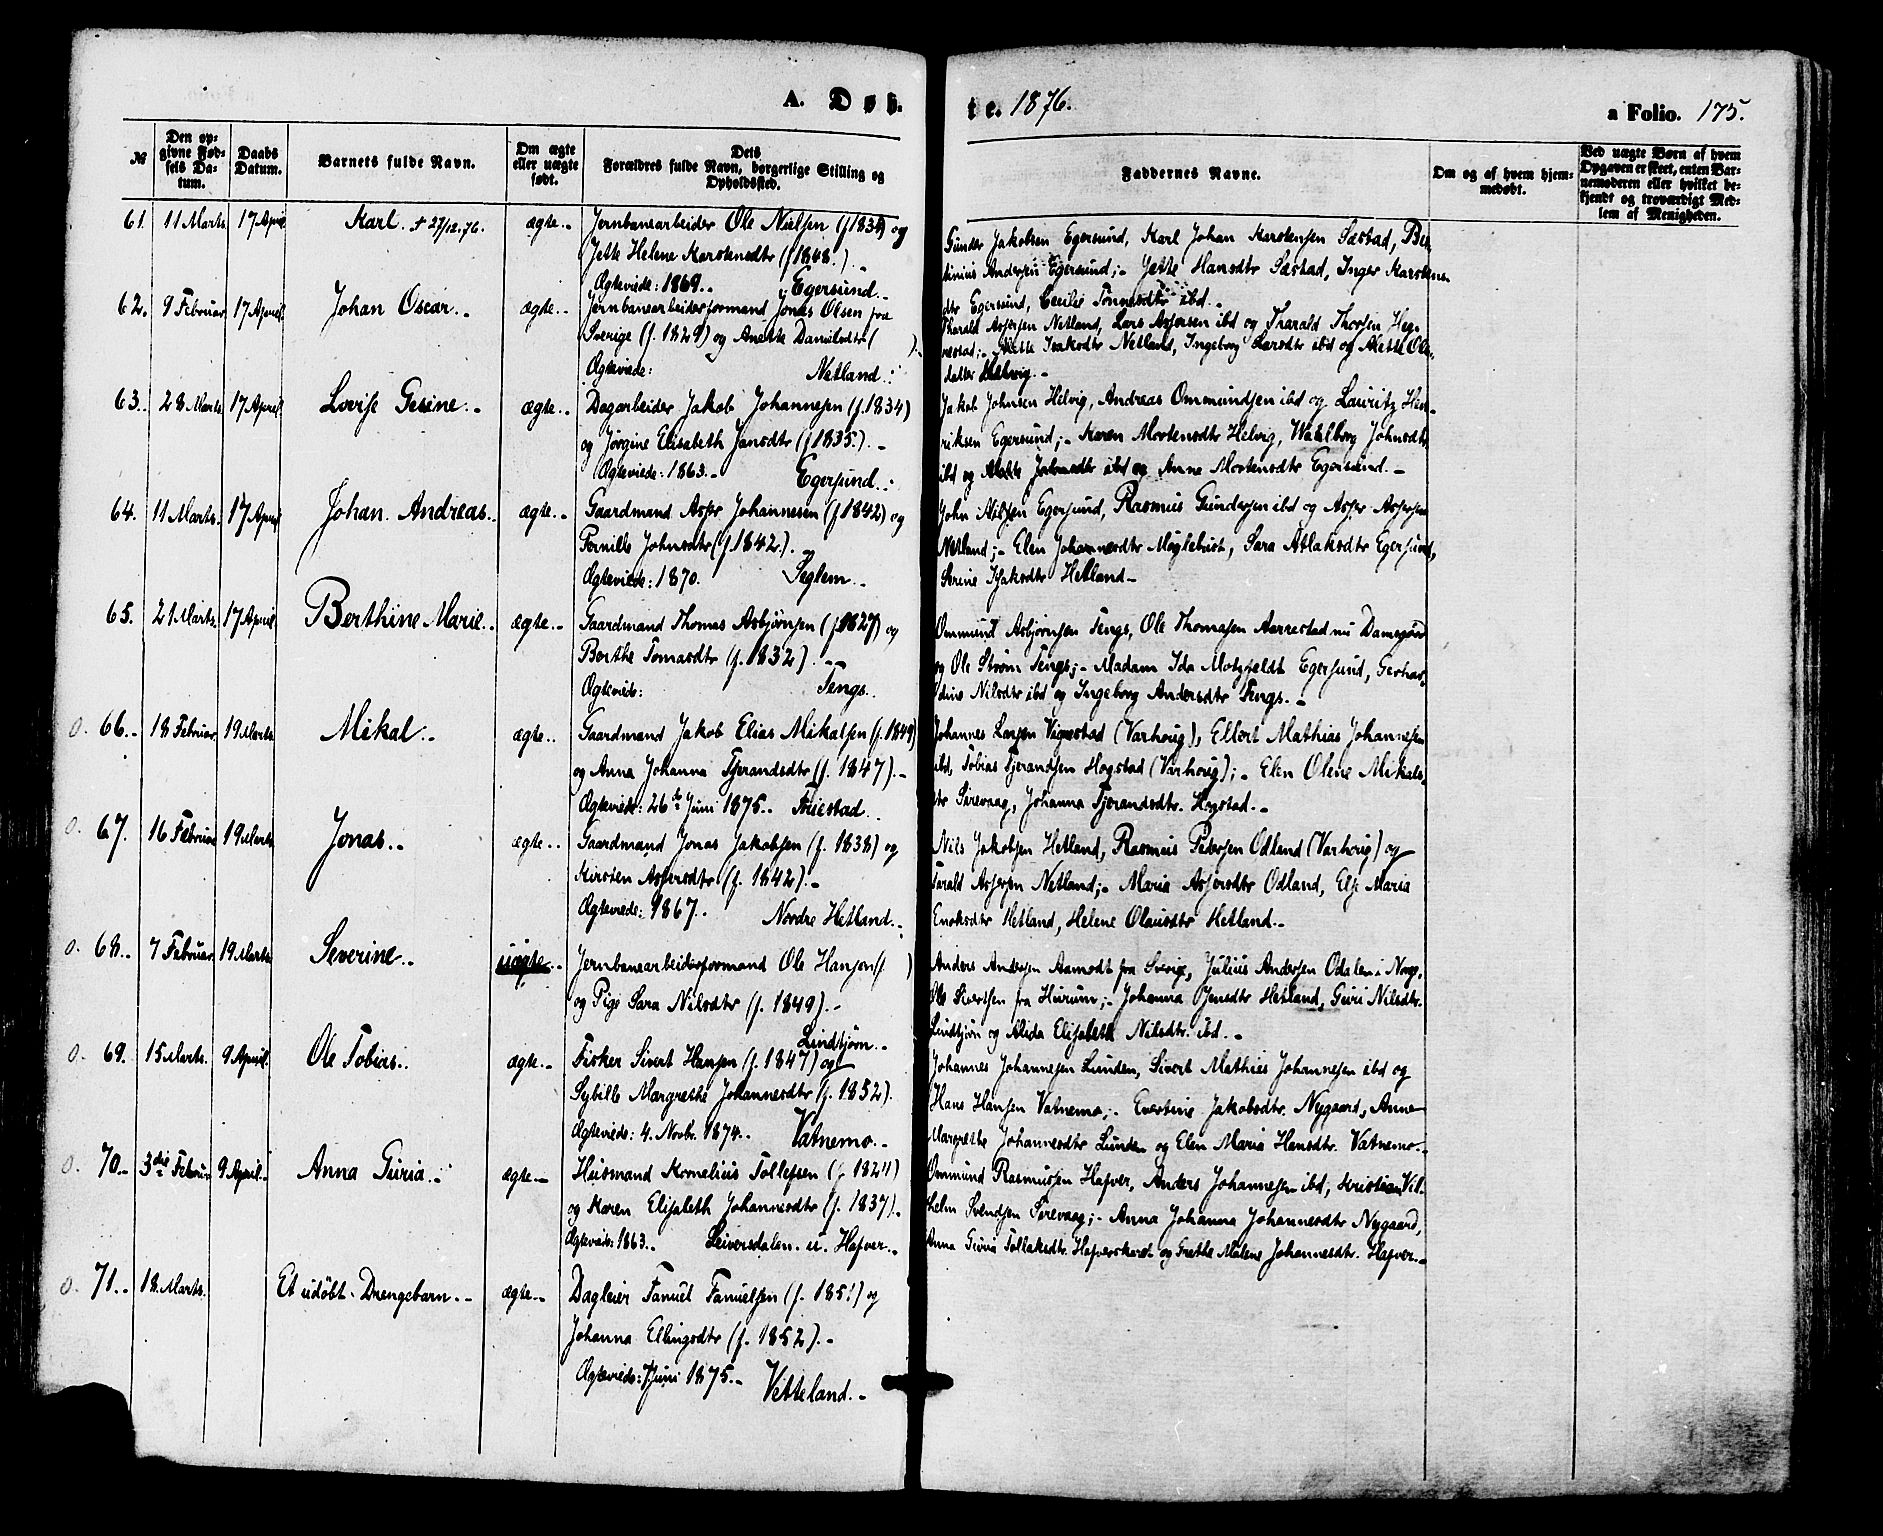 A. Døb-
te. 1876.
a Folio. 175.
№
Den op-
givne Fød-
sels Da-
tum.
Daabs
Datum.
Barnets fulde Navn.
Om ægte
eller uægte
født.
Dets
Forældres fulde Navn, borgerlige Stilling og
Opholdssted.
Faddernes Navne.
Om og af hvem hjem-
medøbt.
Ved uægte Børn af hvem
Opgaven er skeet, enten Bar-
nemoderen eller hvilket be-
kjendt og troværdigt Med-
lem af Menigheden.
61. 11 Marts. 17 April Karl. + 27/12.76. ægte.- Jernbanearbeider Ole Nielsen (f. 1834) og
Jette Helene Karstensdtr (f 1848.).
Ægteviede: 1869.. Egersund.-
Gunder Jakobsen Egersund, Karl Johan Karstensen Sæstad, Ber-
tinius Andersen Egersund;- Jette Hansdtr Sæstad, Inger Karstens-
dtr Egersund, Cecilie Tønnesdtr ibd.-
62. 9 Februar 17 April Johan Oscar.. ægte.- Jernbanearbeiderformand Jonas Olsen fra
Sverige (f. 1829) og Anette Danielsdtr ( ).
Ægteviede: Netland.:
Tharald Aspersen Netland, Lars Aspersen ibd og Tharald Thorsen Heg-
restad;- Mette Isaksdtr Netland, Ingeborg Larsdtr ibd og Mette Ols-
datter Helvig.-
63.. 28 Marts 17 April Lovise Gesine.. ægte.. Dagarbeider Jakob Johannesen (f. 1834)
og Jørgine Elisabeth Jansdtr (f 1835.).-
Ægteviede: 1863.- Egersund.:
Jakob Johnsen Helvig, Andreas Ommundsen ibd og Lauritz Hen-
riksen Egersund;- Karen Mortensdtr Helvig, Wahlborg Johnsdtr
ibd og Mette Johnsdtr ibd og Anne Mortensdtr Egersund.-
64. 11 Marts. 17 April Johan Andreas.. ægte.- Gaardmand Asper Johannesen (f 1842) og
Pernille Johnsdtr (f. 1842.).
Ægteviede: 1870. Seglem..
John Nilsen Egersund, Rasmus Gundersen ibd og Asper Aspersen
Netland;- Elen Johannesdtr Møglebust, Sara Atlaksdtr Egersund,
Serine Isaksdtr Hetland-
65. 21 Marts. 17 April. Berthine Marie.. ægte.- Gaardmand Thomas Asbjørnsen (f. 1827) og
Berthe Tomasdtr (f. 1832).-
Ægteviede: Tengs..
Ommund Asbjørnsen Tengs, Ole Thomasen Aarrestad nu Damsgård
og Ole Strøm Tengs;- Madam Ida Motzfeldt Egersund, Gerhar-
dine Nilsdtr ibd og Ingeborg Andersdtr Tengs.-
0. 66.- 18 Februar 19 Marts. Mikal.. ægte.. Gaardmand Jakob Elias Mikalsen (f. 1849)
og Anna Johanna Tjerandsdtr (f. 1847).-
Ægteviede: 26de Juni 1875.. Friestad..
Johannes Larsen Vigrestad (Varhoug), Ellert Mathias Johannesen
ibd, Tobias Tjerandsen Hogstad (Varhoug);- Elen Olene Mikals-
dtr Sirevaag, Johanna Tjerandsdtr. Hogstad.-
0. 67. 16 Februar 19 Marts Jonas.. ægte.. Gaardmand Jonas Jakobsen (f. 1838) og
Kirsten Aspersdtr (f. 1842).-
Ægteviede: 1867.. Nordre Hetland..
Nils Jakobsen Hetland, Rasmus Pedersen Odland (Varhoug) og
Tarald Aspersen Netland;- Maria Aspersdtr Odland, Else Maria
Enoksdtr Hetland, Helene Olausdtr Hetland.-
0. 68.. 7 Februar 19 Marts Severine.. uægte.. Jernbanearbeiderformand Ole Hansen (f. )
og Pige Sara Nilsdtr (f. 1849).-
Lindtjørn.-
Anders Andersen Aamodt fra Sverige, Julius Andersen Odalen i Norge,
Ole Sivertsen fra Hurum;- Johanna Jensdtr Hetland, Guri Nilsdtr.
Lindtjørn og Alida Elisabeth Nilsdtr. ibd.-
0. 69. 15 Marts. 9 April. Ole Tobias.. ægte.- Fisker Sivert Hansen (f. 1847) og
Sybille Margrethe Johannesdtr (f. 1852).
Ægteviede: 4. Novbr. 1874.. Vatnemo.-
Johannes Johannesen Lunden, Sivert Mathias Johannesen ibd og
Hans Hansen Vatnemo;- Evertine Jakobsdtr. Nygaard, Anne
Margrethe Johannesdtr Lunden og Elen Maria Hansdtr. Vatnemo.-
0. 70.- 3die Februar 9 April.. Anna Guria.. ægte.- Husmand Kornelius Tollefsen (f. 1824)
og Karen Elisabeth Johannesdtr (f. 1837).
Ægteviede: 1863.. Seiversdalen u. Hafver..
Ommund Rasmussen Hafver, Anders Johannesen ibd, Kristian Vil-
helm Svendsen Sirevaag;- Anna Johanna Johannesdtr Nygaard,
Anna Guria Tollaksdtr. Hafverskaret og Grethe Malene Johannesdtr. Hafver.-
0. 71.. 18. Marts. Et udøbt Drengebarn.- ægte.- Dagleier Fanuel Fanuelsen (f. 1851) og
Johanna Ellingsdtr (f. 1852).-
Ægteviede: 7 Juni 1875.- Vetteland.-